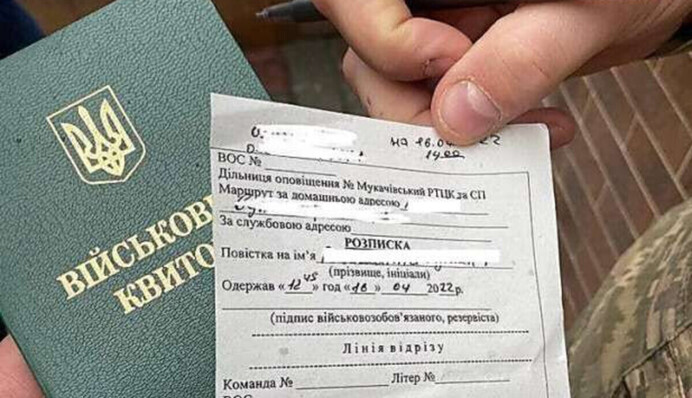 ВІЙСЬКОВ
КВИТО
на 16.04 22
14.00
ВОС №
Дільниця оповіщення № Мукачівський РТЦК та СП
Маршрут за домашньою адресою
За службовою адресою
РОЗПИСКА
Повістка на ім'я
(прізвище, ініціали)
Одержав «12 45» год «16» 04 2022р.
(підпис військовозобов'язаного, резервіста)
Лінія відрізу
Команда № Літер №